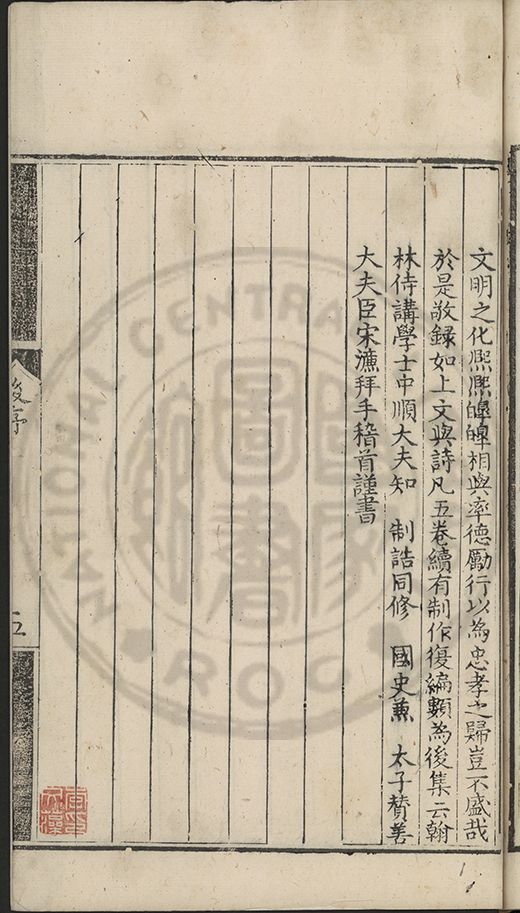 文明之化熈熈皥皥相與率德勵行以為忠孝之歸豈不盛哉
於是敬録如上文與詩凡五卷續有制作復編類為後集云翰
林侍講學士中順大夫知　制誥同修　國史兼　太子賛善
大夫臣宋濂拜手稽首謹書
後序
五
NATIONAL CENTRAL
圖書
ROC